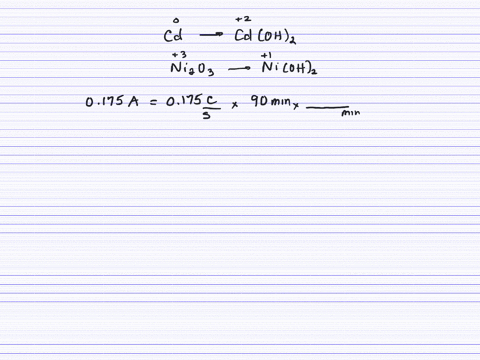 0 +2
Cd → Cd(OH)₂
+3 +1
Ni₂O₃ → Ni(OH)₂
0.175 A = 0.175 C/s × 90 min × ___/min